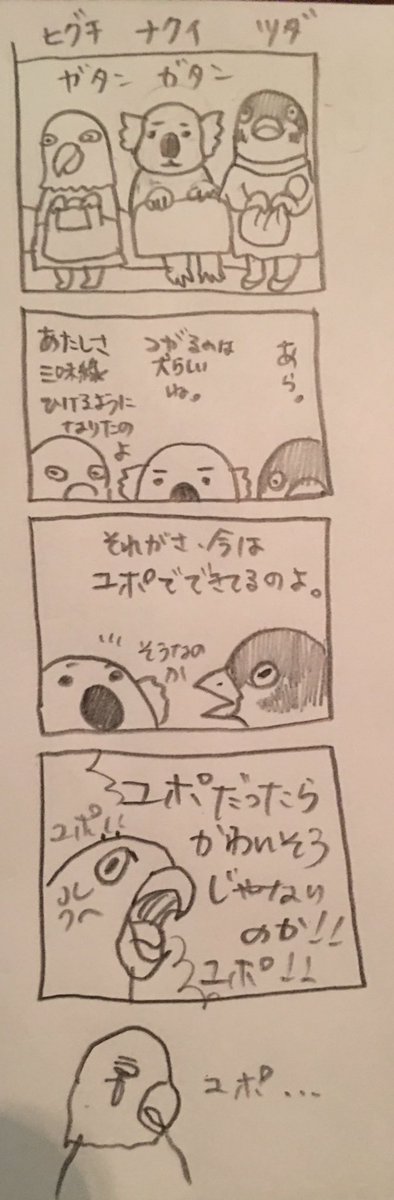 ヒグチ ナクイ ツダ
ガタン ガタン
あたしさ
三味線
ひけるように
なりたいの
よ
つがるのは
犬らしい
ね。
あら。
それがさ、今は
ユポでできてるのよ。
そうなの
か
ユポだったら
かわいそう
じゃない
のか!!
ユポ!!
ユポ!!
ユポ...